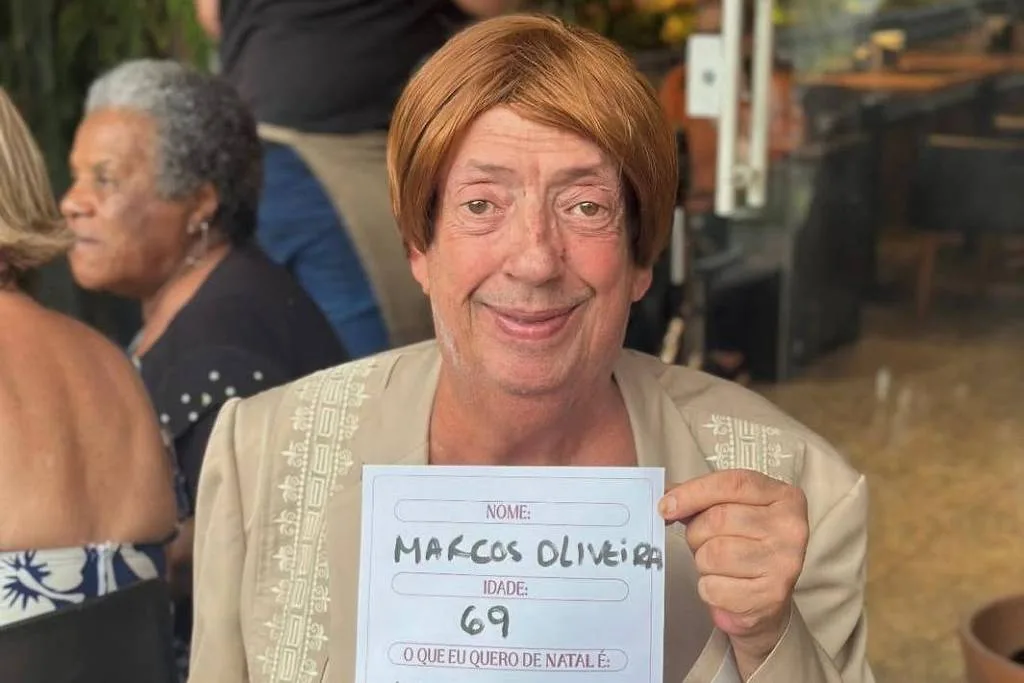 NOME:
MARCOS OLIVEIRA
IDADE:
69
O QUE EU QUERO DE NATAL É: